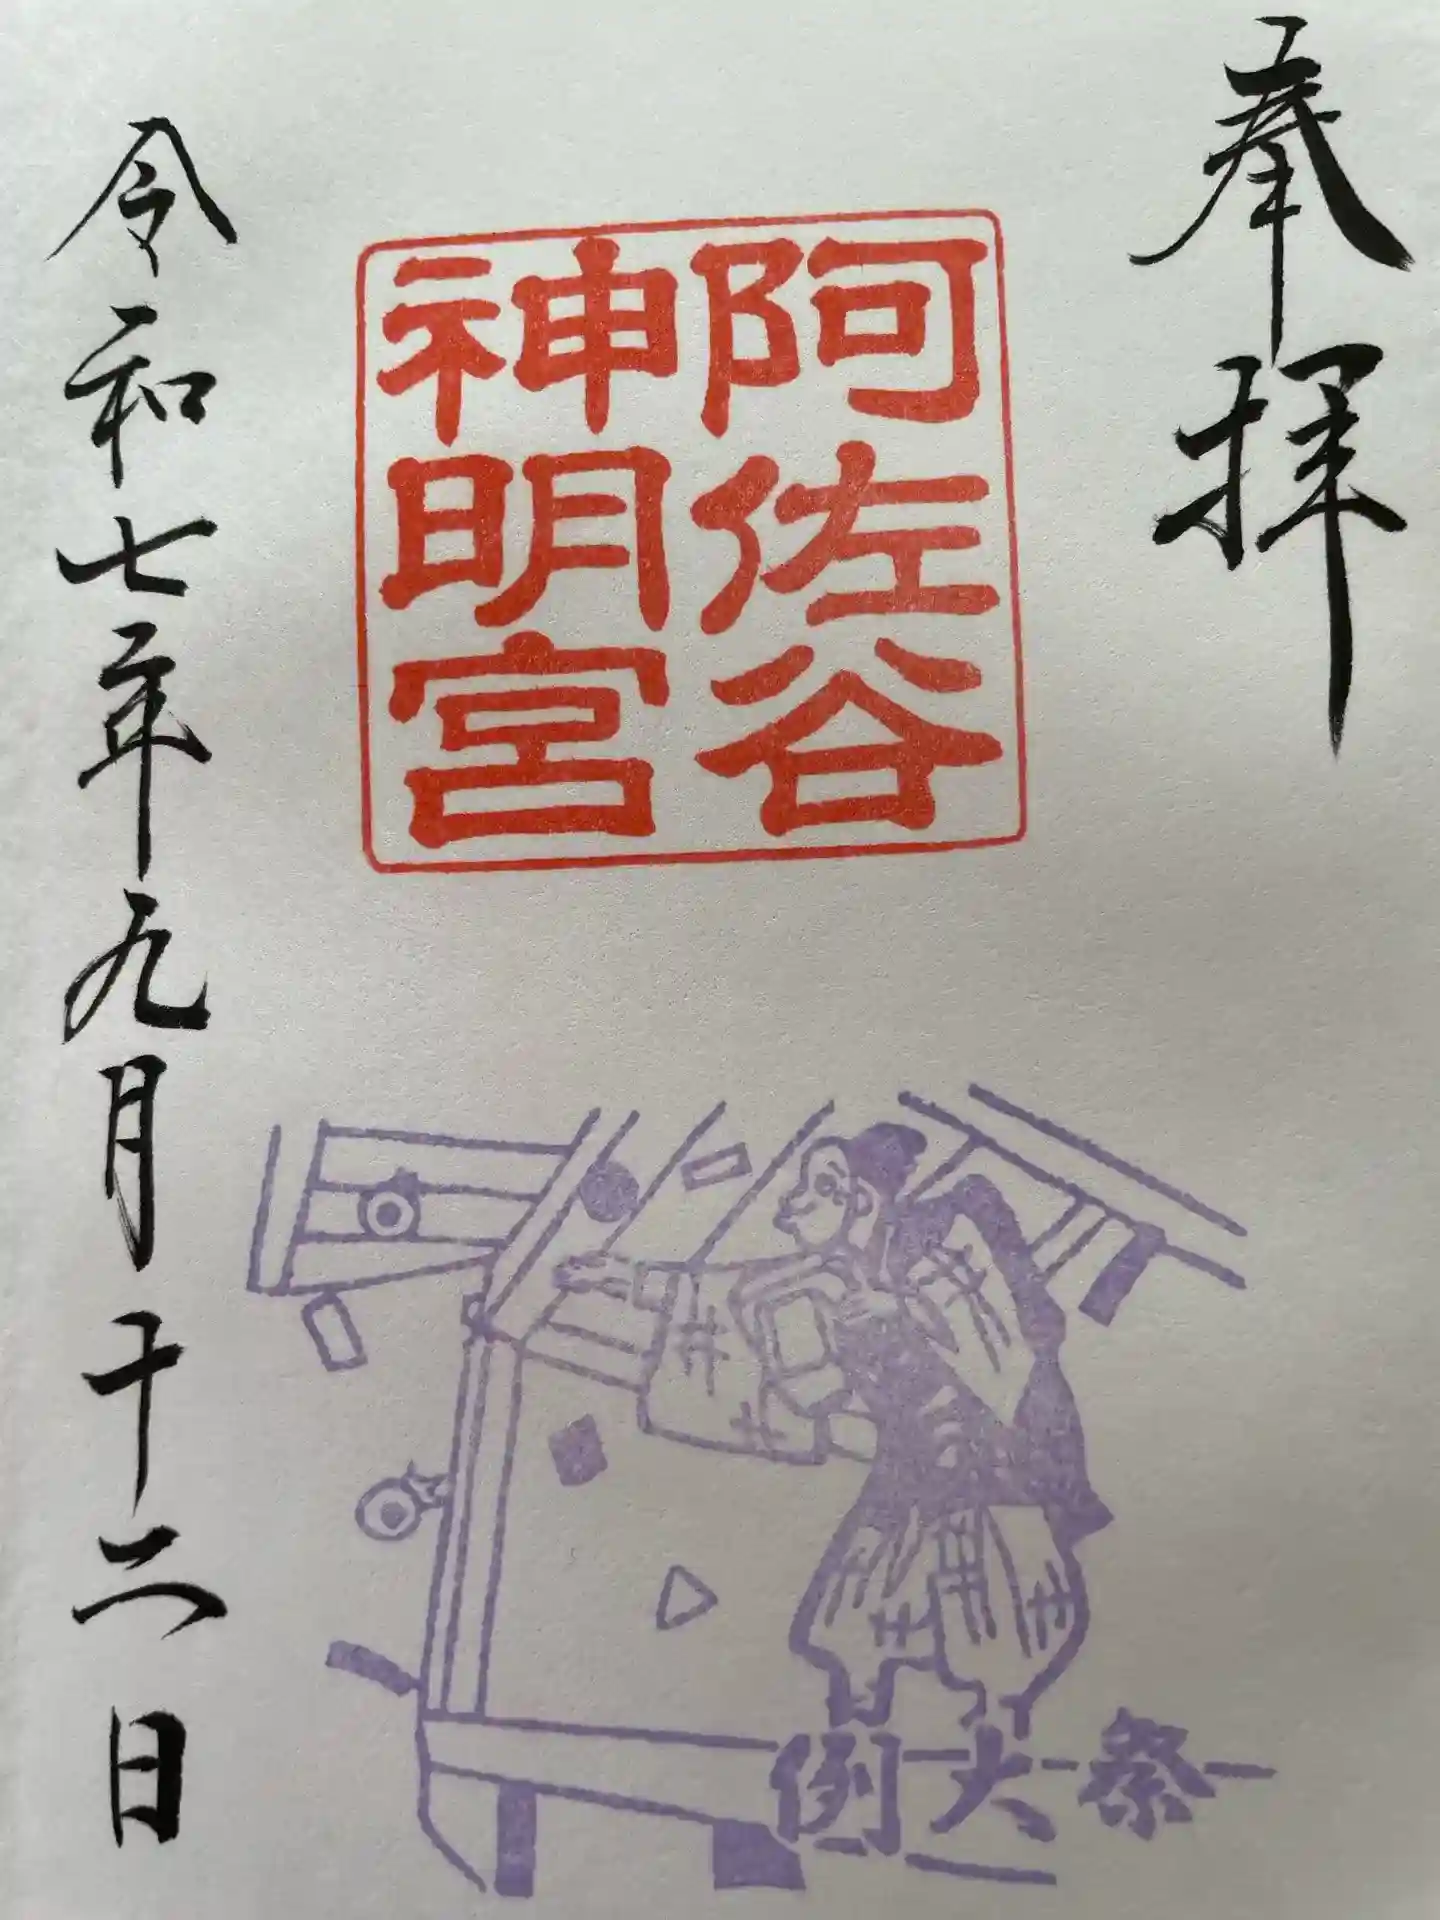 奉拝
阿佐谷
神明宮
例大祭
令和七年九月十二日